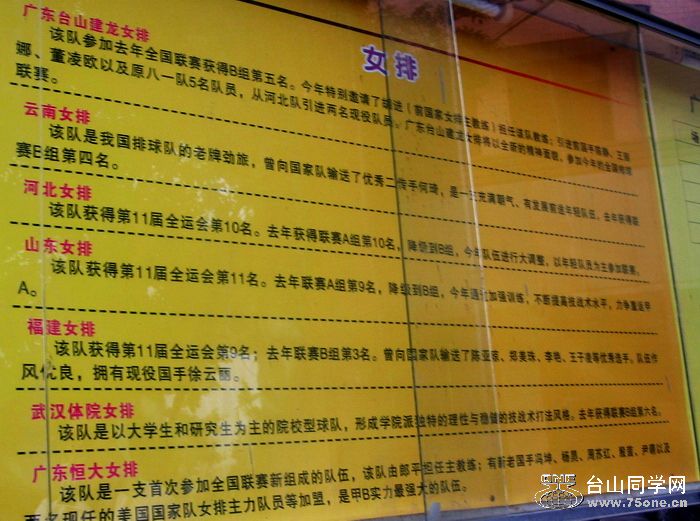 女排
广东台山建龙女排
该队参加去年全国联赛获得B组第五名。今年特别邀请了胡进（前国家女排主教练）担任该队教练；引进前国手陈静、王丽
娜、董凌欧以及原八一队5名队员，从河北队引进两名现役队员。广东台山建龙女排将以全新的精神面貌，参加今年的全国排球
联赛。
云南女排
该队是我国排球队的老牌劲旅，曾向国家队输送了优秀二传手何琦，是一支充满朝气、有发展前途年轻队伍，去年获得联
赛B组第四名。
河北女排
该队获得第11届全运会第10名。去年获得联赛A组第10名，降级到B组，今年队伍进行大调整，以年轻队员为主参加联赛。
山东女排
该队获得第11届全运会第11名。去年联赛A组第9名，降级到B组，今年通过加强训练，不断提高技战术水平，力争重返甲
A。
福建女排
该队获得第11届全运会第9名；去年联赛B组第3名。曾向国家队输送了陈亚琼、郑美珠、李艳、王子凌等优秀选手。队伍作
风优良，拥有现役国手徐云丽。
武汉体院女排
该队是以大学生和研究生为主的院校型球队，形成学院派独特的理性与稳健的技战术打法风格。去年获得联赛B组第六名。
广东恒大女排
该队是一支首次参加全国联赛新组成的队伍，该队由郎平担任主教练；有前老国手冯坤、杨昊、周苏红、殷茵、尹娜以及
两名现任的美国国家队女排主力队员等加盟，是甲B实力最强大的队伍。
台山同学网
www.75one.cn